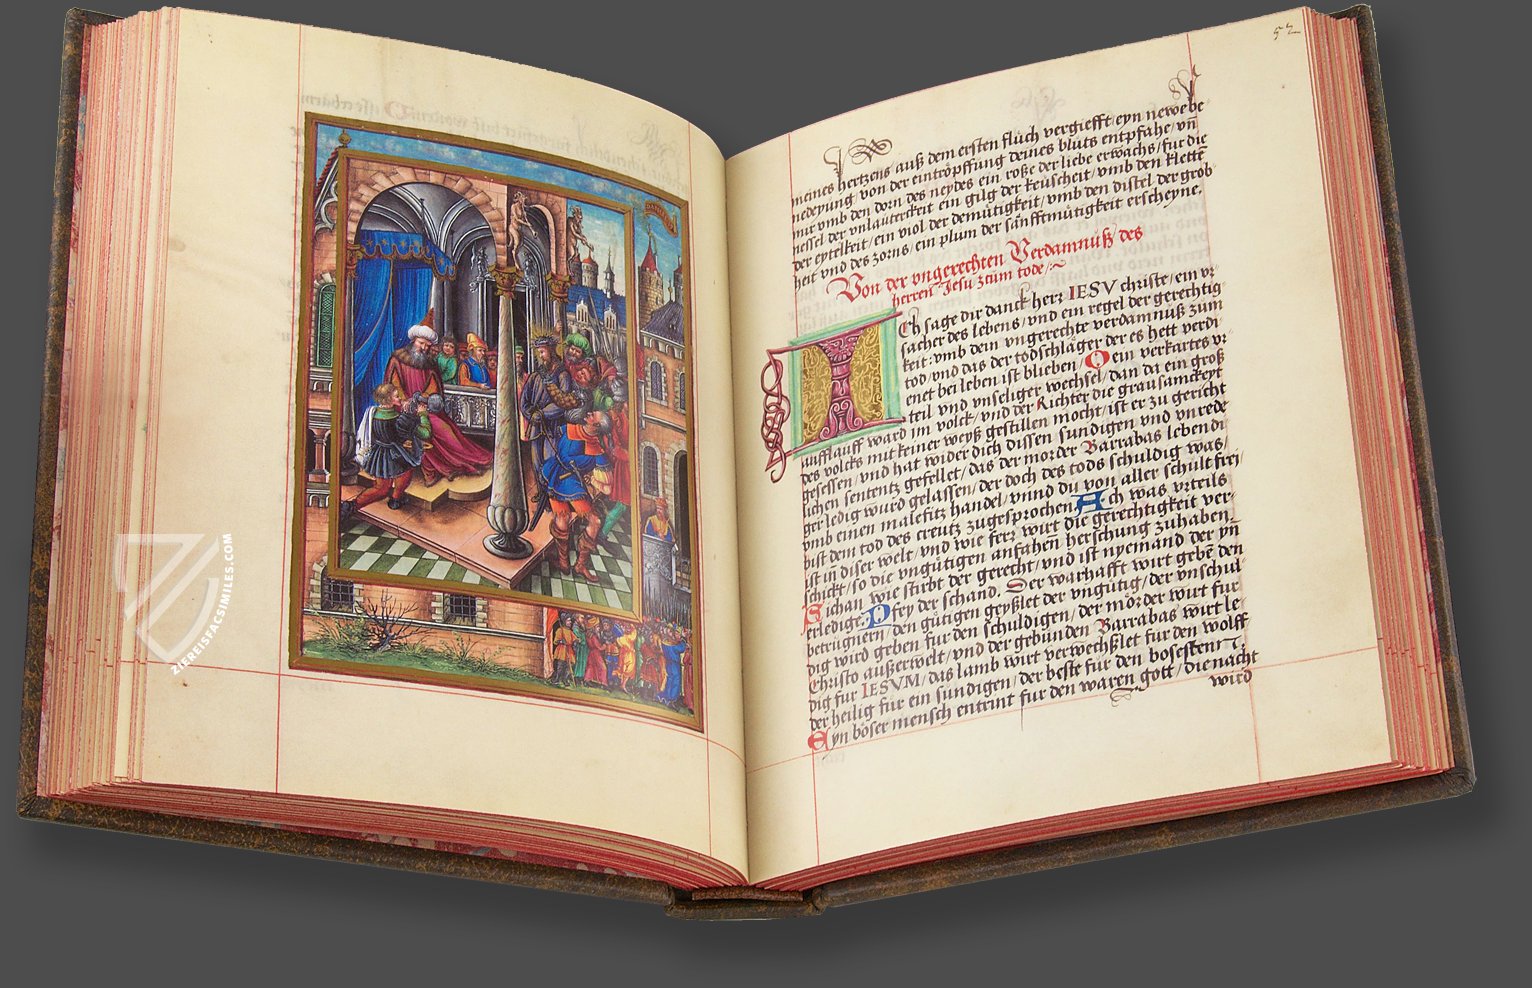 ZIEREISFACSIMILES.COM
52
meines hertzens auß dem ersten fluch vergiefft/eyn newe be-
nedeyung/von der eintröpffung deines bluts entpfahe/vn̄
mir vmb den dorn des neydes ein roße der liebe erwachs/fur die
nessel der vnlauterckeit ein gilg der keuscheit/vmb den klette
der eytelkeit/ein viol der demütigkeit/vmb den distel der grob
heit vnd des zorns/ein plum der sanfftmütigkeit erscheyne,
Von der vngerechten Verdamnuß des
herren Jesu zum tode/~
Ich sage dir danck herr IESV christe/ein vr-
sacher des lebens/vnd ein regel der gerechtig-
keit: vmb dein vngerechte verdamnuß zum
tod/vnd das der todschläger der es hett verdi-
enet bei leben ist blieben/O ein verkartes vr
teil vnd vnseliger wechsel/dan da ein groß
aufflauff ward im volck/vnd der Richter die grausamckeyt
des volcks mit keiner weyß gestillen mocht/ist er zu gericht
gesessen/vnd hat wider dich dissen sundigen vnd vnrede
lichen sententz gefellet/das der morder Barrabas lebendi
ger ledig wurd gelassen/der doch des tods schuldig was/
vmb einen malefitz handel/vnnd du von aller schult frei/
bist dem tod des creutz zugesprochen/Ach was vrteils
ist in diser welt/vnd wie ferr wirt die gerechtigkeit ver-
schickt/so die vngütigen anfahen̄ herschung zuhaben
Sichan wie stirbt der gerecht/vnd ist nyemand der yn̄
erledige. Pfey der schand. Der warhafft wirt gebē den
betrugnern/den gütigen geyßlet der vngutig/der vnschul
dig wird geben fur den schuldigen/der mörder wurt fur
Christo außerwelt/vnd der gebunden Barrabas wurt le-
dig fur IESVM/das lamb wurt verwechßlet fur den wolff
der heilig fur ein sundigen/der beste fur den bosesten
Ayn böser mensch entrint fur den waren gott/die nacht
wird